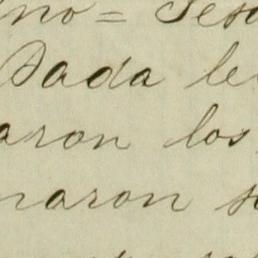 no= Tes
Dada le
aron los
naron s